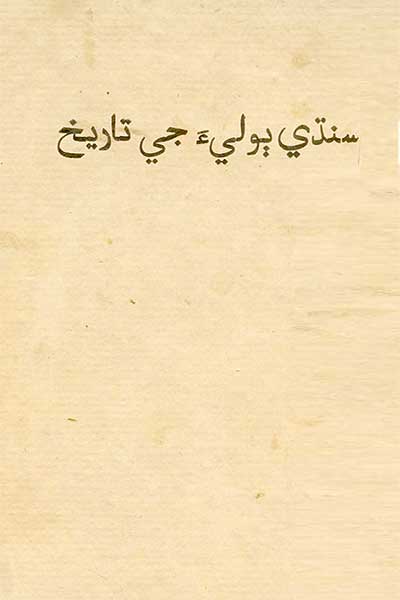 سنڌي ٻوليءَ جي تاريخ